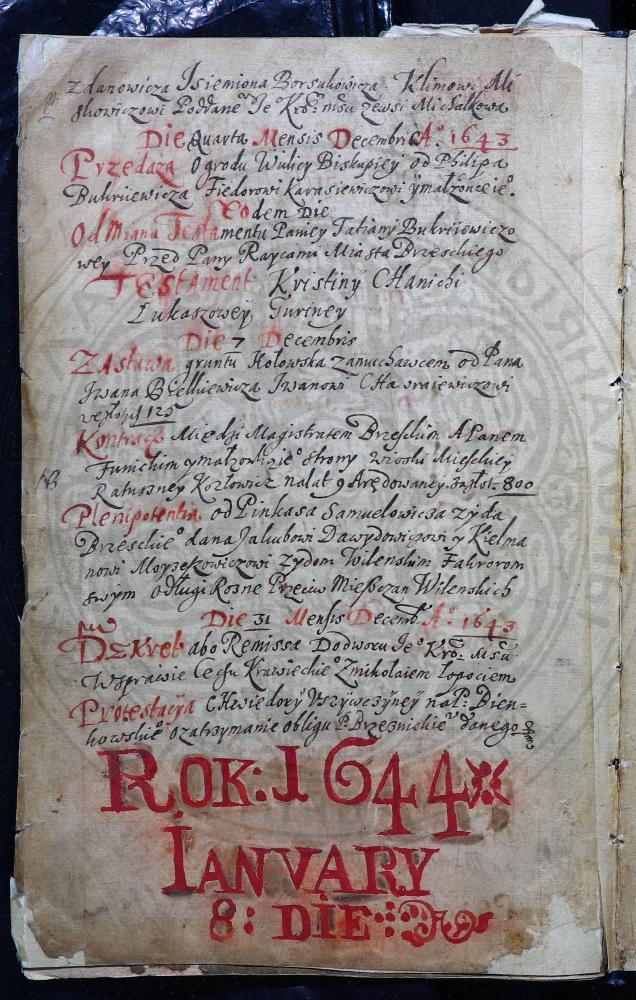 Zdanowicza Isiemiona Borsukowicza. Klimowi Mi
skowiczowi Poddane Je° Krō: msci zewsi Michalkowa
Die Quarta Mensis Decembris A°: 1643
Przedaza Ogrodu Wulicy Biskupiey od Philipa
Bukriiewicza Fiedorowi Karasiewiczowi ymałżonce ie°.
Eodem Die
Odmiana Testamentu Paniey Tatiany Bukriiewiczo
wey Przed Pany Raycami Miasta Brzeskiego
Testament Kristiny CHanichi
Lukaszowey Turiney
Die 7 Decembris
Zastawa gruntu Hołowska od Pana
Iwana Bielkiewicza Iwanowi CHawraiewiczowi
125
Kontract Między Magistratem Brzeskim A Panem
Furickim ymałżonką ie° strony wioski Mieskiey
Ratuszney Kozłowicz nalat 9 Arędowaney. zazłot. 800
Plenipotentia od Pinkasa Samuelowicza Zyda
Brzeskie° dana Jakubowi Dawydowiczowi y Kielma
nowi Moyzeszowiczowi Zydom Wilenskim Faktorom
swym Odługi Rozne Przeciw Mieszczan Wilenskich
Die 31 Mensis Decemb. A°: 1643
Dekret abo Remissa Dodworu Je° Krō: Mści
Wsprawie Cechu Krawieckie° Zmikołaiem Łopociem
Protestacyia CHwiedory Vszywczyney na P: Bien=
kowskie° ozatrzymanie obligu P: Brzeznickie° danego
Rok: 1644
IANVARY
8: DIE: